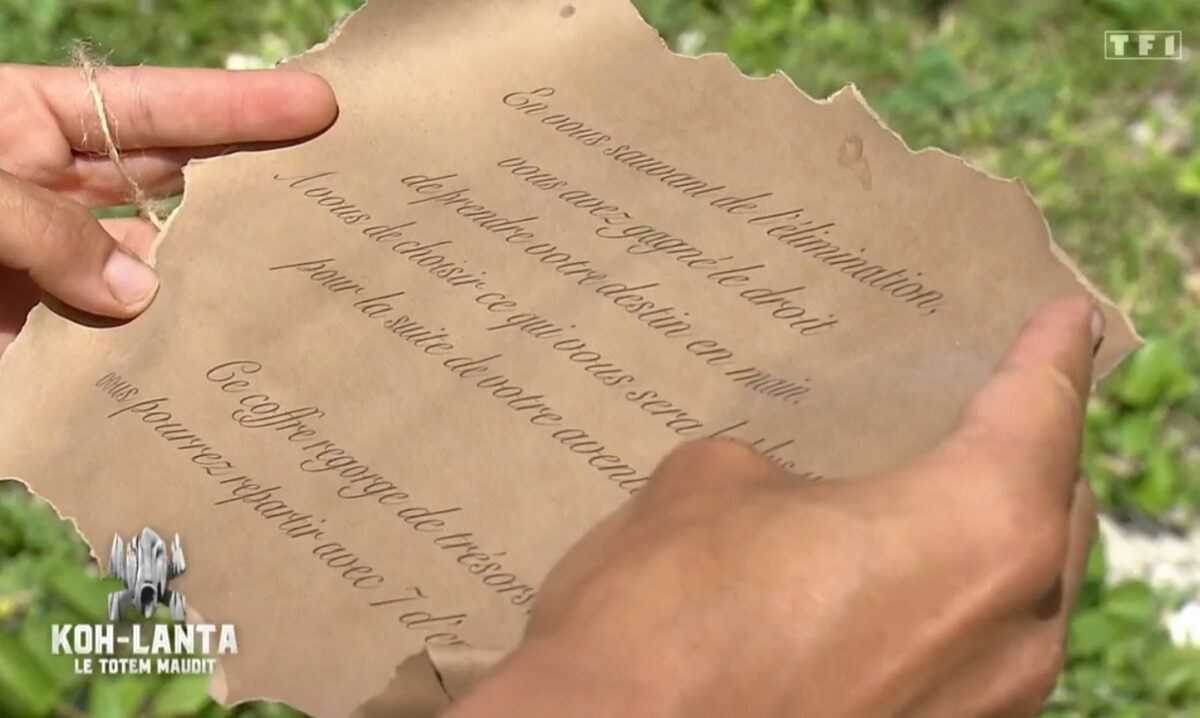 TF1
En vous sauvant de l'élimination,
vous avez gagné le droit
de prendre votre destin en main.
A vous de choisir ce qui vous sera
pour la suite de votre
Ce coffre regorge de trésors,
vous pourrez repartir avec 7
KOH-LANTA
LE TOTEM MAUDIT